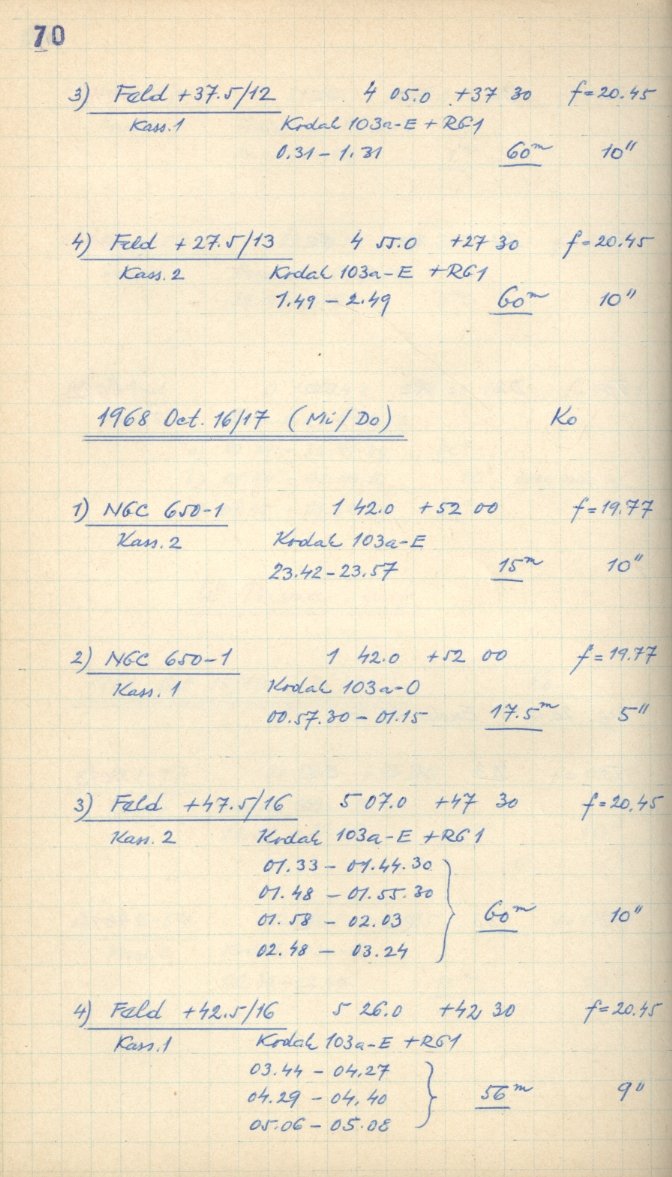 70
3) Feld +37.5/12 4 05.0 +37 30 f=20.45
Kass.1 Kodak 103a-E + RG1
0.31 – 1.31 60m 10"
4) Feld +27.5/13 4 55.0 +27 30 f=20.45
Kass.2 Kodak 103a-E +RG1
1.49 – 2.49 60m 10"
1968 Oct. 16/17 (Mi/Do) Ko
1) NGC 650-1 1 42.0 +52 00 f=19.77
Kass.2 Kodak 103a-E
23.42-23.57 15m 10"
2) NGC 650-1 1 42.0 +52 00 f=19.77
Kass.1 Kodak 103a-O
00.57.30 – 01.15 17.5m 5"
3) Feld +47.5/16 5 07.0 +47 30 f=20.45
Kass.2 Kodak 103a-E +RG1
01.33 – 01.44.30
01.48 – 01.55.30
01.58 – 02.03 60m 10"
02.48 – 03.24
4) Feld +42.5/16 5 26.0 +42 30 f=20.45
Kass.1 Kodak 103a-E +RG1
03.44 – 04.27
04.29 – 04.40 56m 9"
05.06 – 05.08